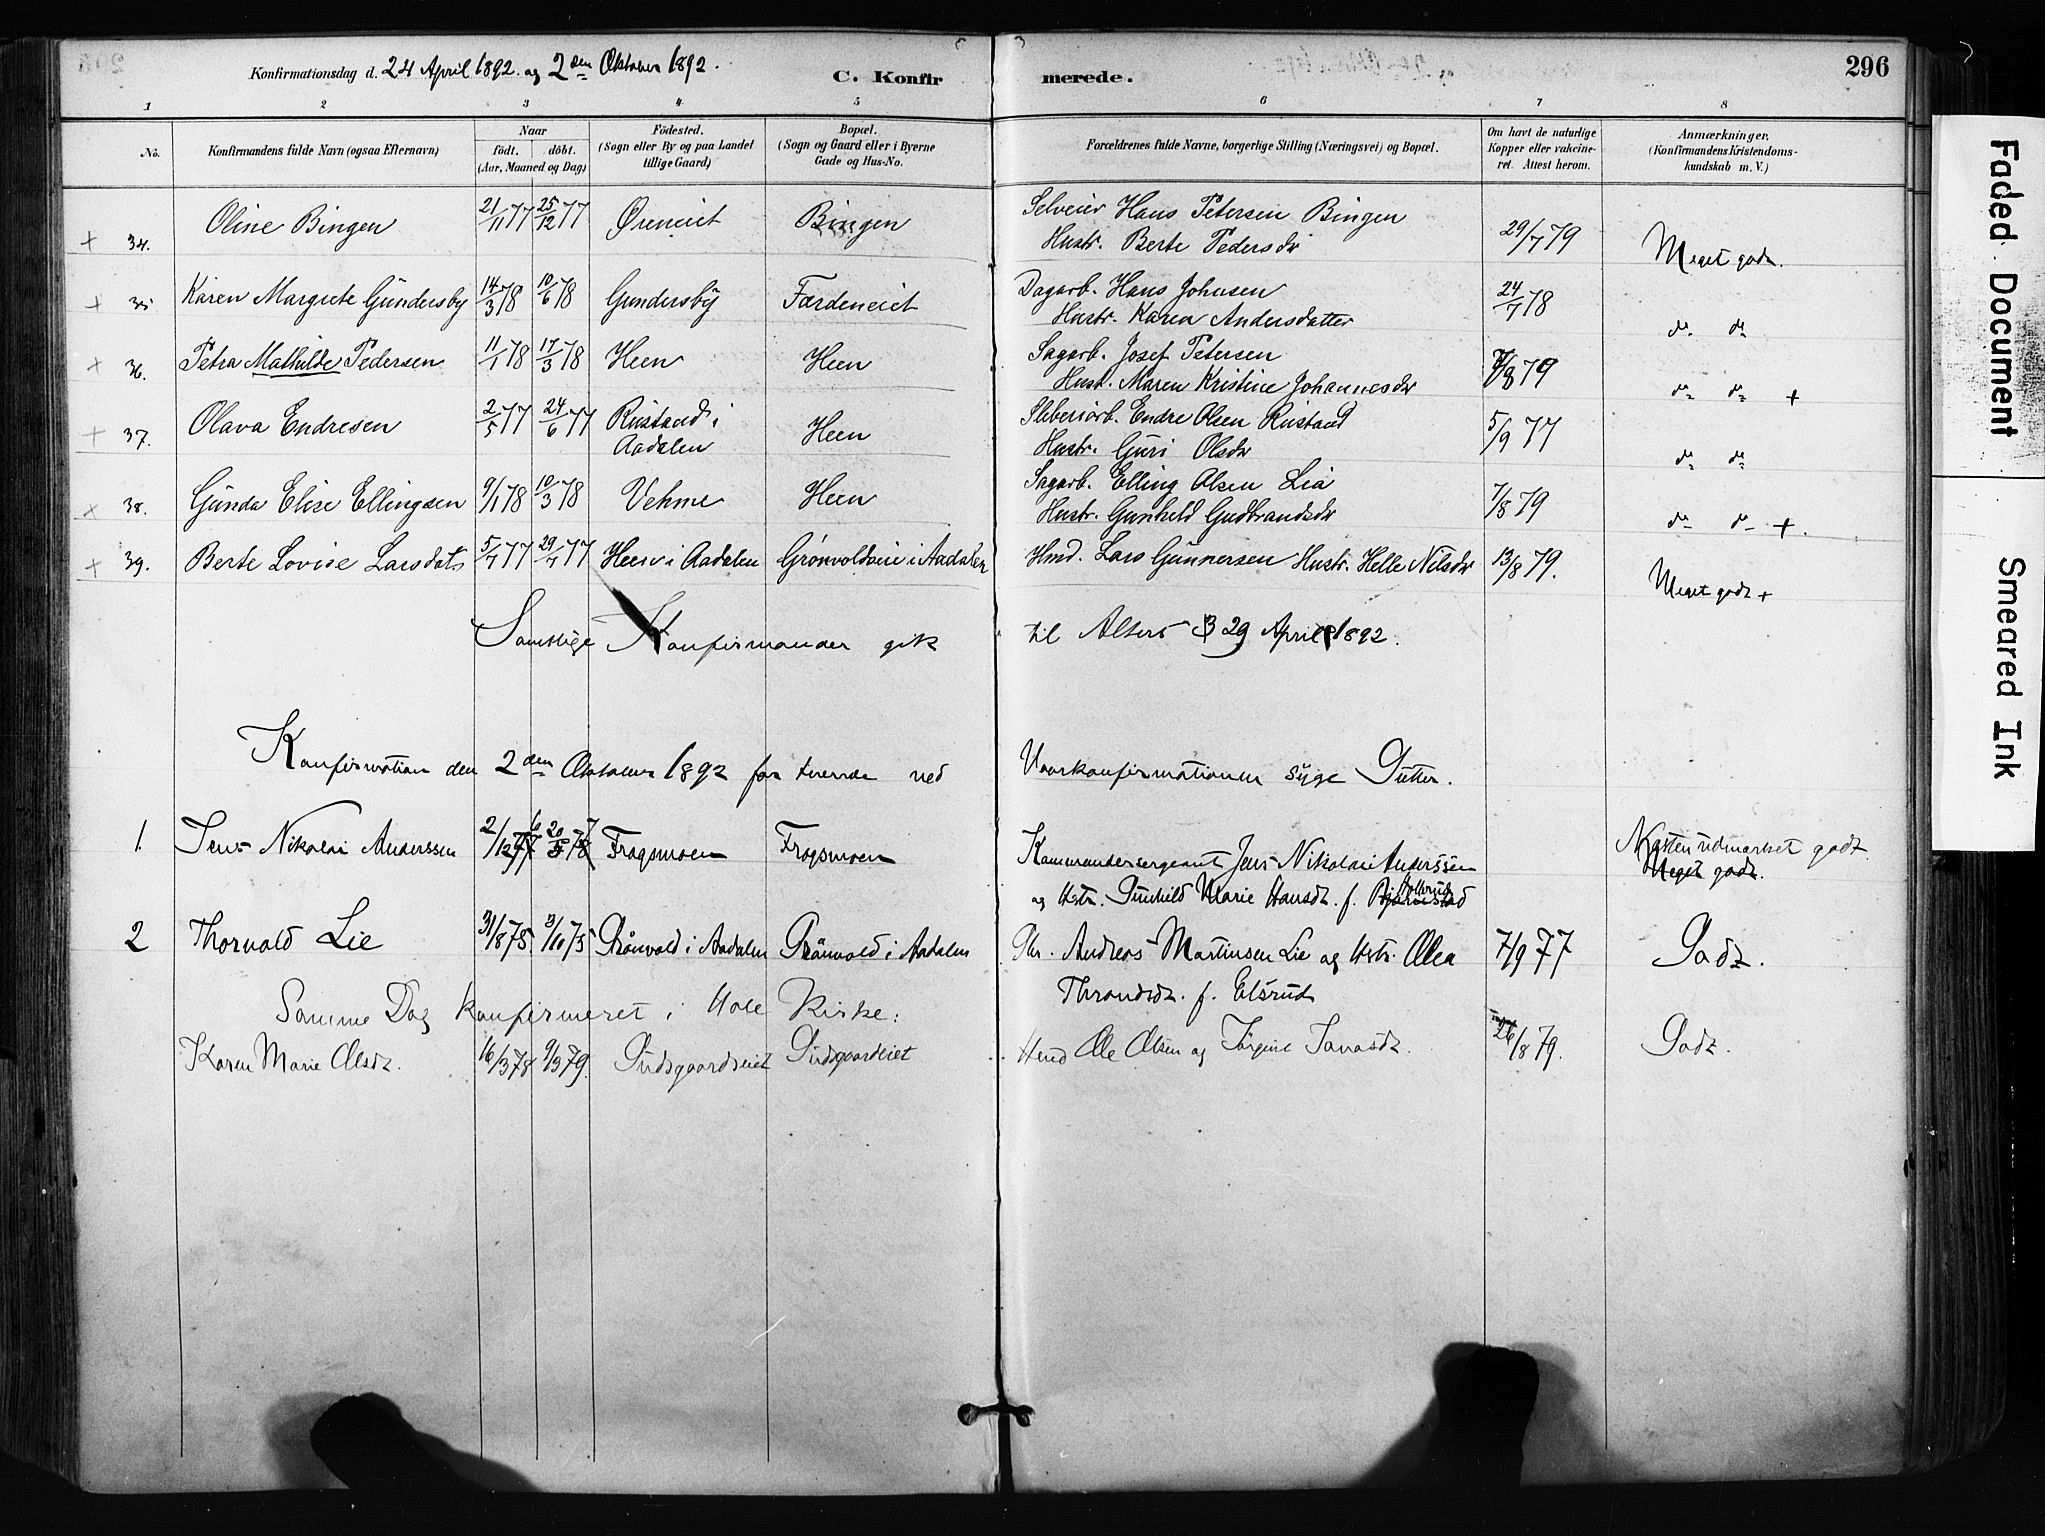 Konfirmationsdag d. 24 April 1892. og 2den Oktober 1892.
C. Konfirmerede.
296
1 2 3 4 5 6 7 8
No.
Konfirmandens fulde Navn (ogsaa Efternavn)
Naar
födt. döbt.
(Aar, Maaned og Dag)
Födested.
(Sogn eller By og paa Landet
tillige Gaard)
Bopæl.
(Sogn og Gaard eller i Byerne
Gade og Hus-No.
Forældrenes fulde Navne, borgerlige Stilling (Næringsvei) og Bopæl.
Om havt de naturlige
Kopper eller vakcine-
ret. Attest herom.
Anmærkninger.
(Konfirmandens Kristendoms-
kundskab m. V.)
+ 34. Oline Bingen 21/11 77 25/12 77 Øreneiet Bingen Selveier Hans Petersen Bingen 29/7 79 Meget godt.
Hustr. Berte Pedersdr
+ 35 Karen Margrete Gundersby 14/3 78 10/6 78 Gundersby Færdeneiet Dagarb. Hans Johnsen 24/7 78 do. do
Hustr. Karen Andersdatter
+ 36. Petra Mathilde Pedersen 11/1 78 17/3 78 Heen Heen Sagarb. Josef Petersen 7/8 79 do do +
Hust. Maren Kristine Johannesdr
+ 37. Olava Endresen 2/5 77 24/6 77 Rustand i Aadalen Heen Sliberiarb. Endre Olsen Rustand 5/9 77 do do
Hustr. Guri Olsdr
+ 38. Gunda Elise Ellingsen 9/1 78 10/3 78 Vehme Heen Sagarb. Elling Olsen Lia 7/8 79 do do +.
Hustr. Gunhild Gudbrandsdr
+ 39. Berte Lovise Larsdat. 5/7 77 29/7 77 Heen i Aadalen Grønvoldeie i Aadalen Hmd. Lars Gunnersen Hustr. Helle Nilsdr 13/8 79. Meget godt +
Samtlige Konfirmander gik til Alters 29 April 1892.
Konfirmation den 2den Oktober 1892 for tvende ved Vaarkonfirmationen syge Gutter.
1. Jens Nikolai Anderssen 2/12 77 Frogsmoen Frogsmoen Kommandersergeant Jens Nikolai Anderssen Næsten udmærket godt
og Hstr. Gunhild Marie Hansdt. f. Meget godt.
2 Thorvald Lie 31/8 75. 3/10 75 Grönvold i Aadalen Grönvold i Aadalen Gbr. Andreas Martinsen Lie og Hstr. Olea 7/9 77 Godt.
Throndsdt. f. Elsrud
Samme Dag konfirmeret i Hole Kirke:
Karen Marie Olsdt. 16/3 78 9/3 79. Gudsgaardseiet Gudsgaardeiet Hmd Ole Olsen og Jörgine Jonasdt. 26/8 79. Godt.
Faded Document
Smeared Ink